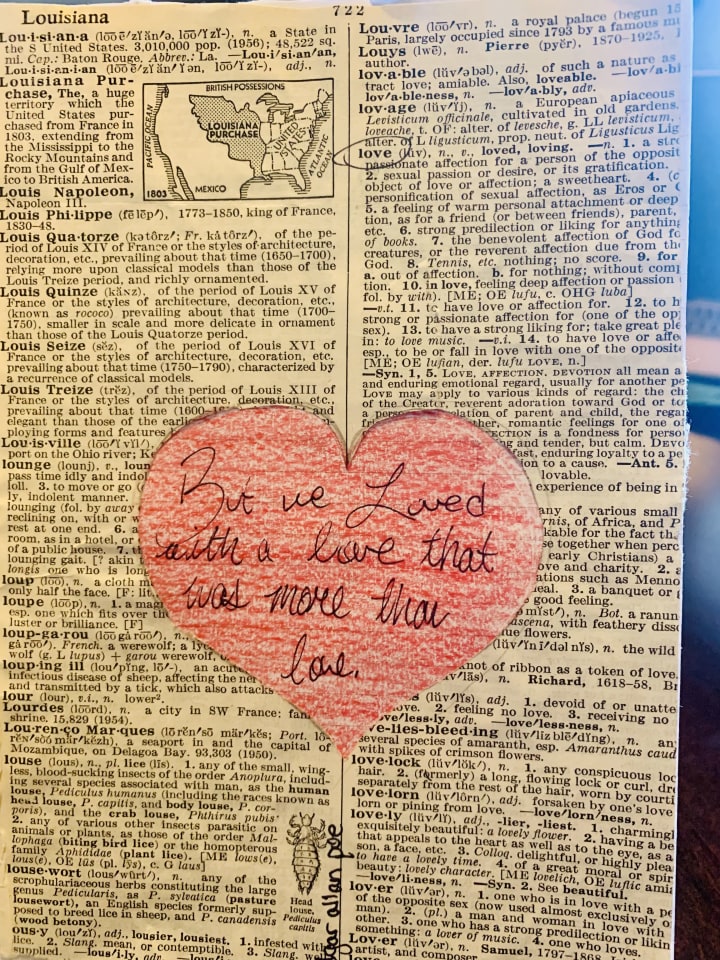 Louisiana
722
Lou·i·si·an·a (lōō ē′zĭ ăn′ə, lōō′ĭ zĭ-), n. a State in
the S United States. 3,010,000 pop. (1956); 48,522 sq.
mi. Cap.: Baton Rouge. Abbrev.: La. —Lou·i′si·an′an,
Lou·i·si·an·i·an (lōō ē′zĭ ăn′ĭ ən, lōō′ĭ zĭ-), adj., n.
Louisiana Pur-
chase, The, a huge
territory which the
United States pur-
chased from France in
1803, extending from
the Mississippi to the
Rocky Mountains and
from the Gulf of Mex-
ico to British America.
BRITISH POSSESSIONS
PACIFIC OCEAN
LOUISIANA
PURCHASE
UNITED
STATES
ATLANTIC
OCEAN
MEXICO
1803
Louis Napoleon,
Napoleon III.
Louis Phi·lippe (fē lēp′), 1773–1850, king of France,
1830–48.
Louis Qua·torze (kə tôrz′; Fr. kȧ tôrz′), of the pe-
riod of Louis XIV of France or the styles of architecture,
decoration, etc., prevailing about that time (1650–1700),
relying more upon classical models than those of the
Louis Treize period, and richly ornamented.
Louis Quinze (kănz), of the period of Louis XV of
France or the styles of architecture, decoration, etc.,
(known as rococo) prevailing about that time (1700–
1750), smaller in scale and more delicate in ornament
than those of the Louis Quatorze period.
Louis Seize (sĕz), of the period of Louis XVI of
France or the styles of architecture, decoration, etc.
prevailing about that time (1750–1790), characterized by
a recurrence of classical models.
Louis Treize (trĕz), of the period of Louis XIII of
France or the styles of architecture, decoration, etc.,
prevailing about that time (1600–
elegant than those of the
ploying forms and features
Lou·is·ville (lōō′ĭ vĭl′),
port on the Ohio river; Ke
lounge (lounj), v., loun
pass time idly and indo
loll. 3. to move or go
ly, indolent manner.
lounging (fol. by away
reclining on, with or w
rest at one end. 6. a
room, as in a hotel, or
of a public house. 7. th
lounging gait. [? akin
longis one who is long
loup (lōō), n. a cloth m
only half the face. [F: lit
loupe (lōōp), n. 1. a mag
esp. one which fits over th
luster or brilliance. [F]
loup-ga·rou (lōō gȧ rōō′), n.,
gȧ rōō′). French. a werewolf; a ly
wolf (g. L lupus) + garou werewolf,
loup·ing ill (lou′pĭng, lō′-), an acute
infectious disease of sheep, affecting the ner
and transmitted by a tick, which also attacks
lour (lour), v.i., n. lower².
Lourdes (lōōrd), n. a city in SW France: fam
shrine. 15,829 (1954).
Lou·ren·ço Mar·ques (lō rĕn′sō mär′kĕs; Port. lō-
rĕn′sōō mär′kĕzh), a seaport in and the capital of
Mozambique, on Delagoa Bay. 93,303 (1950).
louse (lous), n., pl. lice (līs). 1. any of the small, wing-
less, blood-sucking insects of the order Anoplura, includ-
ing several species associated with man, as the human
louse, Pediculus humanus (including the races known as
head louse, P. capitis, and body louse, P. cor-
poris), and the crab louse, Phthirus pubis
2. any of various other insects parasitic on
animals or plants, as those of the order Mal-
lophaga (biting bird lice) or the homopterous
family Aphididae (plant lice). [ME lows(e),
lous(e), OE lūs (pl. lȳs), c. G laus]
louse·wort (lous′wûrt′), n. any of the
scrophulariaceous herbs constituting the large
genus Pedicularis, as P. sylvatica (pasture
lousewort), an English species formerly sup-
posed to breed lice in sheep, and P. canadensis
(wood betony).
ous·y (lou′zĭ), adj., lousier, lousiest. 1. infested with
lice. 2. Slang. mean, or contemptible. 3. Slang. we
supplied. —lous′i·ly, adv.
Head
louse,
Pediculus
capitis
Lou·vre (lōō′vr), n. a royal palace (begun 15
Paris, largely occupied since 1793 by a famous mu
Louÿs (lwē), n. Pierre (pyĕr), 1870–1925,
author.
lov·a·ble (lŭv′ə bəl), adj. of such a nature as
tract love; amiable. Also, loveable. —lov′a·bi
lov′a·ble·ness, n. —lov′a·bly, adv.
lov·age (lŭv′ĭj), n. a European apiaceous
Levisticum officinale, cultivated in old gardens.
loveache, t. OF: alter. of levesche, g. LL levisticum,
alter. of L ligusticum, prop. neut. of Ligusticus Lig
love (lŭv), n., v., loved, loving. —n. 1. a stro
passionate affection for a person of the opposit
2. sexual passion or desire, or its gratification.
object of love or affection; a sweetheart. 4. (c
personification of sexual affection, as Eros or C
5. a feeling of warm personal attachment or deep
tion, as for a friend (or between friends), parent,
etc. 6. strong predilection or liking for anything
of books. 7. the benevolent affection of God for
creatures, or the reverent affection due from the
God. 8. Tennis, etc. nothing; no score. 9. for
a. out of affection. b. for nothing; without com
tion. 10. in love, feeling deep affection or passion
fol. by with). [ME; OE lufu, c. OHG luba]
—v.t. 11. to have love or affection for. 12. to h
strong or passionate affection for (one of the op
sex). 13. to have a strong liking for; take great ple
in: to love music. —v.i. 14. to have love or affe
esp., to be or fall in love with one of the opposit
[ME; OE lufian, der. lufu LOVE, n.]
—Syn. 1, 5. LOVE, AFFECTION, DEVOTION all mean a
and enduring emotional regard, usually for another pe
Love may apply to various kinds of regard: the ch
of the Creator, reverent adoration toward God or to
a perso relation of parent and child, the regar
friends for other, romantic feelings for one of
ECTION is a fondness for perso
ng and tender, but calm. DEVO
fast, enduring loyalty to a pe
ion to a cause. —Ant. 5.
lovable.
experience of being in
any of various small
rnis, of Africa, and P
kable for the fact th
se together when perc
early Christians) a
ove and charity. 2. a
ations such as Menno
eal. 3. a banquet or g
good feeling.
mĭst′), n. Bot. a ranun
ascena, with feathery diss
ue flowers.
(lŭv′ĭn ī′dəl nĭs), n. the wild
knot of ribbon as a token of love.
n. Richard, 1618–58, Br
(lŭv′lĭs), adj. 1. devoid of or unatte
ve. 2. feeling no love. 3. receiving no
ve′less·ly, adv. —love′less·ness, n.
ve-lies-bleed·ing (lŭv′līz blē′dĭng), n. an
several species of amaranth, esp. Amaranthus caud
with spikes of crimson flowers.
love·lock (lŭv′lŏk′), n. 1. any conspicuous loc
hair. 2. (formerly) a long, flowing lock or curl, dre
separately from the rest of the hair, worn by courti
love·lorn (lŭv′lôrn′), adj. forsaken by one's love
lorn or pining from love. —love′lorn′ness, n.
love·ly (lŭv′lĭ), adj., -lier, -liest. 1. charmingl
exquisitely beautiful: a lovely flower. 2. having a be
that appeals to the heart as well as to the eye, as a
son, a face, etc. 3. Colloq. delightful, or highly plea
to have a lovely time. 4. of a great moral or spir
beauty: lovely character. [ME lovelich, OE luflic ami
—love′li·ness, n. —Syn. 2. See beautiful.
lov·er (lŭv′ər), n. 1. one who is in love with a pe
of the opposite sex (now used almost exclusively o
man). 2. (pl.) a man and woman in love with
other. 3. one who has a strong predilection or likin
something: a lover of music. 4. one who loves.
Lov·er (lŭv′ər), n. Samuel, 1797–1868,
artist, and composer
But we Loved
with a love that
was more than
love.
allan poe